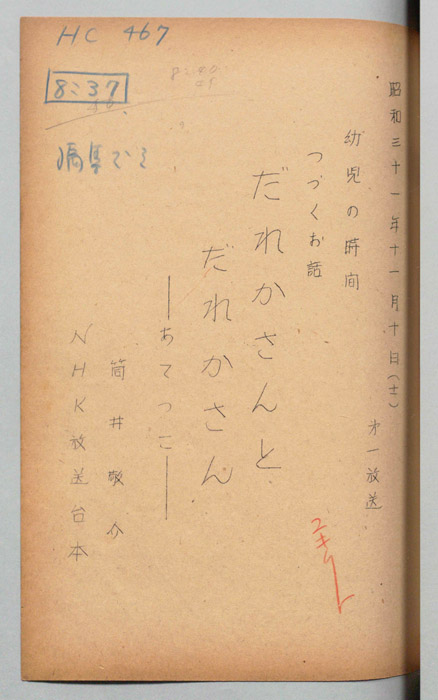 昭和三十一年十一月十日（土）
第一放送
幼児の時間
つづくお話
だれかさんと
だれかさん
―あてっこ―
筒井敬介
NHK放送台本
HC 467
8:37
8:40
編集でミ